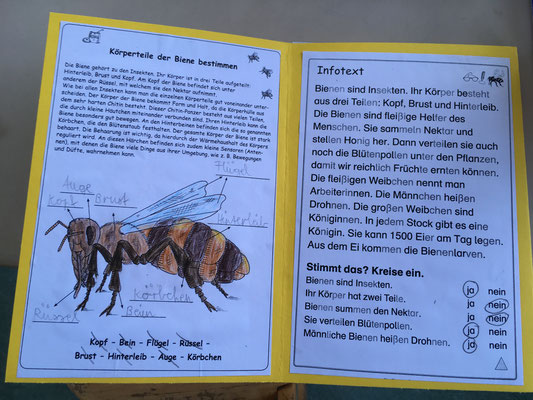 Körperteile der Biene bestimmen
Die Biene gehört zu den Insekten. Ihr Körper ist in drei Teile aufgeteilt:
Hinterleib, Brust und Kopf. Am Kopf der Biene befindet sich unter
anderem der Rüssel, mit welchem sie den Nektar aufnimmt.
Wie bei allen Insekten kann man die einzelnen Körperteile gut voneinander unter-
scheiden. Der Körper der Biene bekommt Form und Halt, da die Körperhülle aus
dem sehr harten Chitin besteht. Dieser Chitin-Panzer besteht aus vielen Teilen,
die durch kleine Hautschuppen miteinander verbunden sind. Ihren Hinterleib kann die
Biene besonders gut bewegen. An den Hinterbeinen befinden sich die so genannten
Körbchen, die den Blütenstaub festhalten. Der gesamte Körper der Biene ist stark
behaart. Die Behaarung ist wichtig, da hierdurch der Wärmehaushalt des Körpers
reguliert wird. An diesen Härchen befinden sich zudem kleine Sensoren (Anten-
nen), mit denen die Biene viele Dinge aus ihrer Umgebung, wie z. B. Bewegungen
und Düfte, wahrnehmen kann.
Flügel
Auge
Kopf
Brust
Hinterleib
Körbchen
Rüssel
Bein
Kopf - Bein - Flügel - Rüssel -
Brust - Hinterleib - Auge - Körbchen
Infotext
Bienen sind Insekten. Ihr Körper besteht
aus drei Teilen: Kopf, Brust und Hinterleib.
Die Bienen sind fleißige Helfer des
Menschen. Sie sammeln Nektar und
stellen Honig her. Dann verteilen sie auch
noch die Blütenpollen unter den Pflanzen,
damit wir reichlich Früchte ernten können.
Die fleißigen Weibchen nennt man
Arbeiterinnen. Die Männchen heißen
Drohnen. Die großen Weibchen sind
Königinnen. In jedem Stock gibt es eine
Königin. Sie kann 1500 Eier am Tag legen.
Aus dem Ei kommen die Bienenlarven.
Stimmt das? Kreise ein.
Bienen sind Insekten. ja nein
Ihr Körper hat zwei Teile. ja nein
Bienen summen den Nektar. ja nein
Sie verteilen Blütenpollen. ja nein
Männliche Bienen heißen Drohnen. ja nein